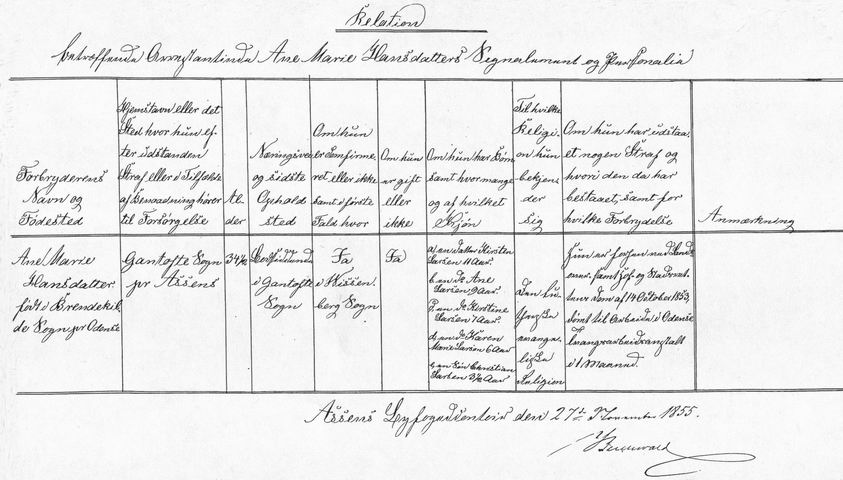 Relation
betræffende Arrestantinde Ane Marie Hansdatters Signalement og Personalia
Forbryderens
Navn og
Fødested
Hjemstavn eller det
Sted hvor hun ef-
ter udstanden
Straf eller i Tilfælde
af Benaadning hører
til Forsørgelse
Al-
der
Næringsvei
og sidste
Ophold
sted
Om hun
er Confirme-
ret eller ikke
samt i første
Fald hvor
Om hun
er gift
eller
ikke
Om hun har Børn
samt hvormange
og af hvilket
Kjøn
Til hvilke
Religi-
on hun
bekjen-
der
sig
Om hun har udstaa-
et nogen Straf og
hvori den da har
bestaaet, samt for
hvilke Forbrydelse
Anmærkning
Ane Marie
Hansdatter
født i Brendekil-
de Sogn pr Odense
Gamtofte Sogn
pr Assens
34½
i Gamtofte
Sogn
Ja
i Vissen-
berg Sogn
Ja
a, en datter Kirsten
Larsen 11 Aar
b, en do Ane
Larsen 9 Aar
c, en do Kirstine
Larsen 7 Aar
d, en do Karen
Marie Larsen 6 Aar
e, en Søn Christian
Larsen 3½ Aar
Den lu-
therske
evange-
liske
Religion
Hun er ved Lands-
over, samt Hof- og Stadsret-
tens Dom af 14 October 1853
dømt til Arbeide i Odense
Tvangsarbeidsanstalt
i 1 Maaned.
Assens Byfogedcontoir den 27de November 1855.